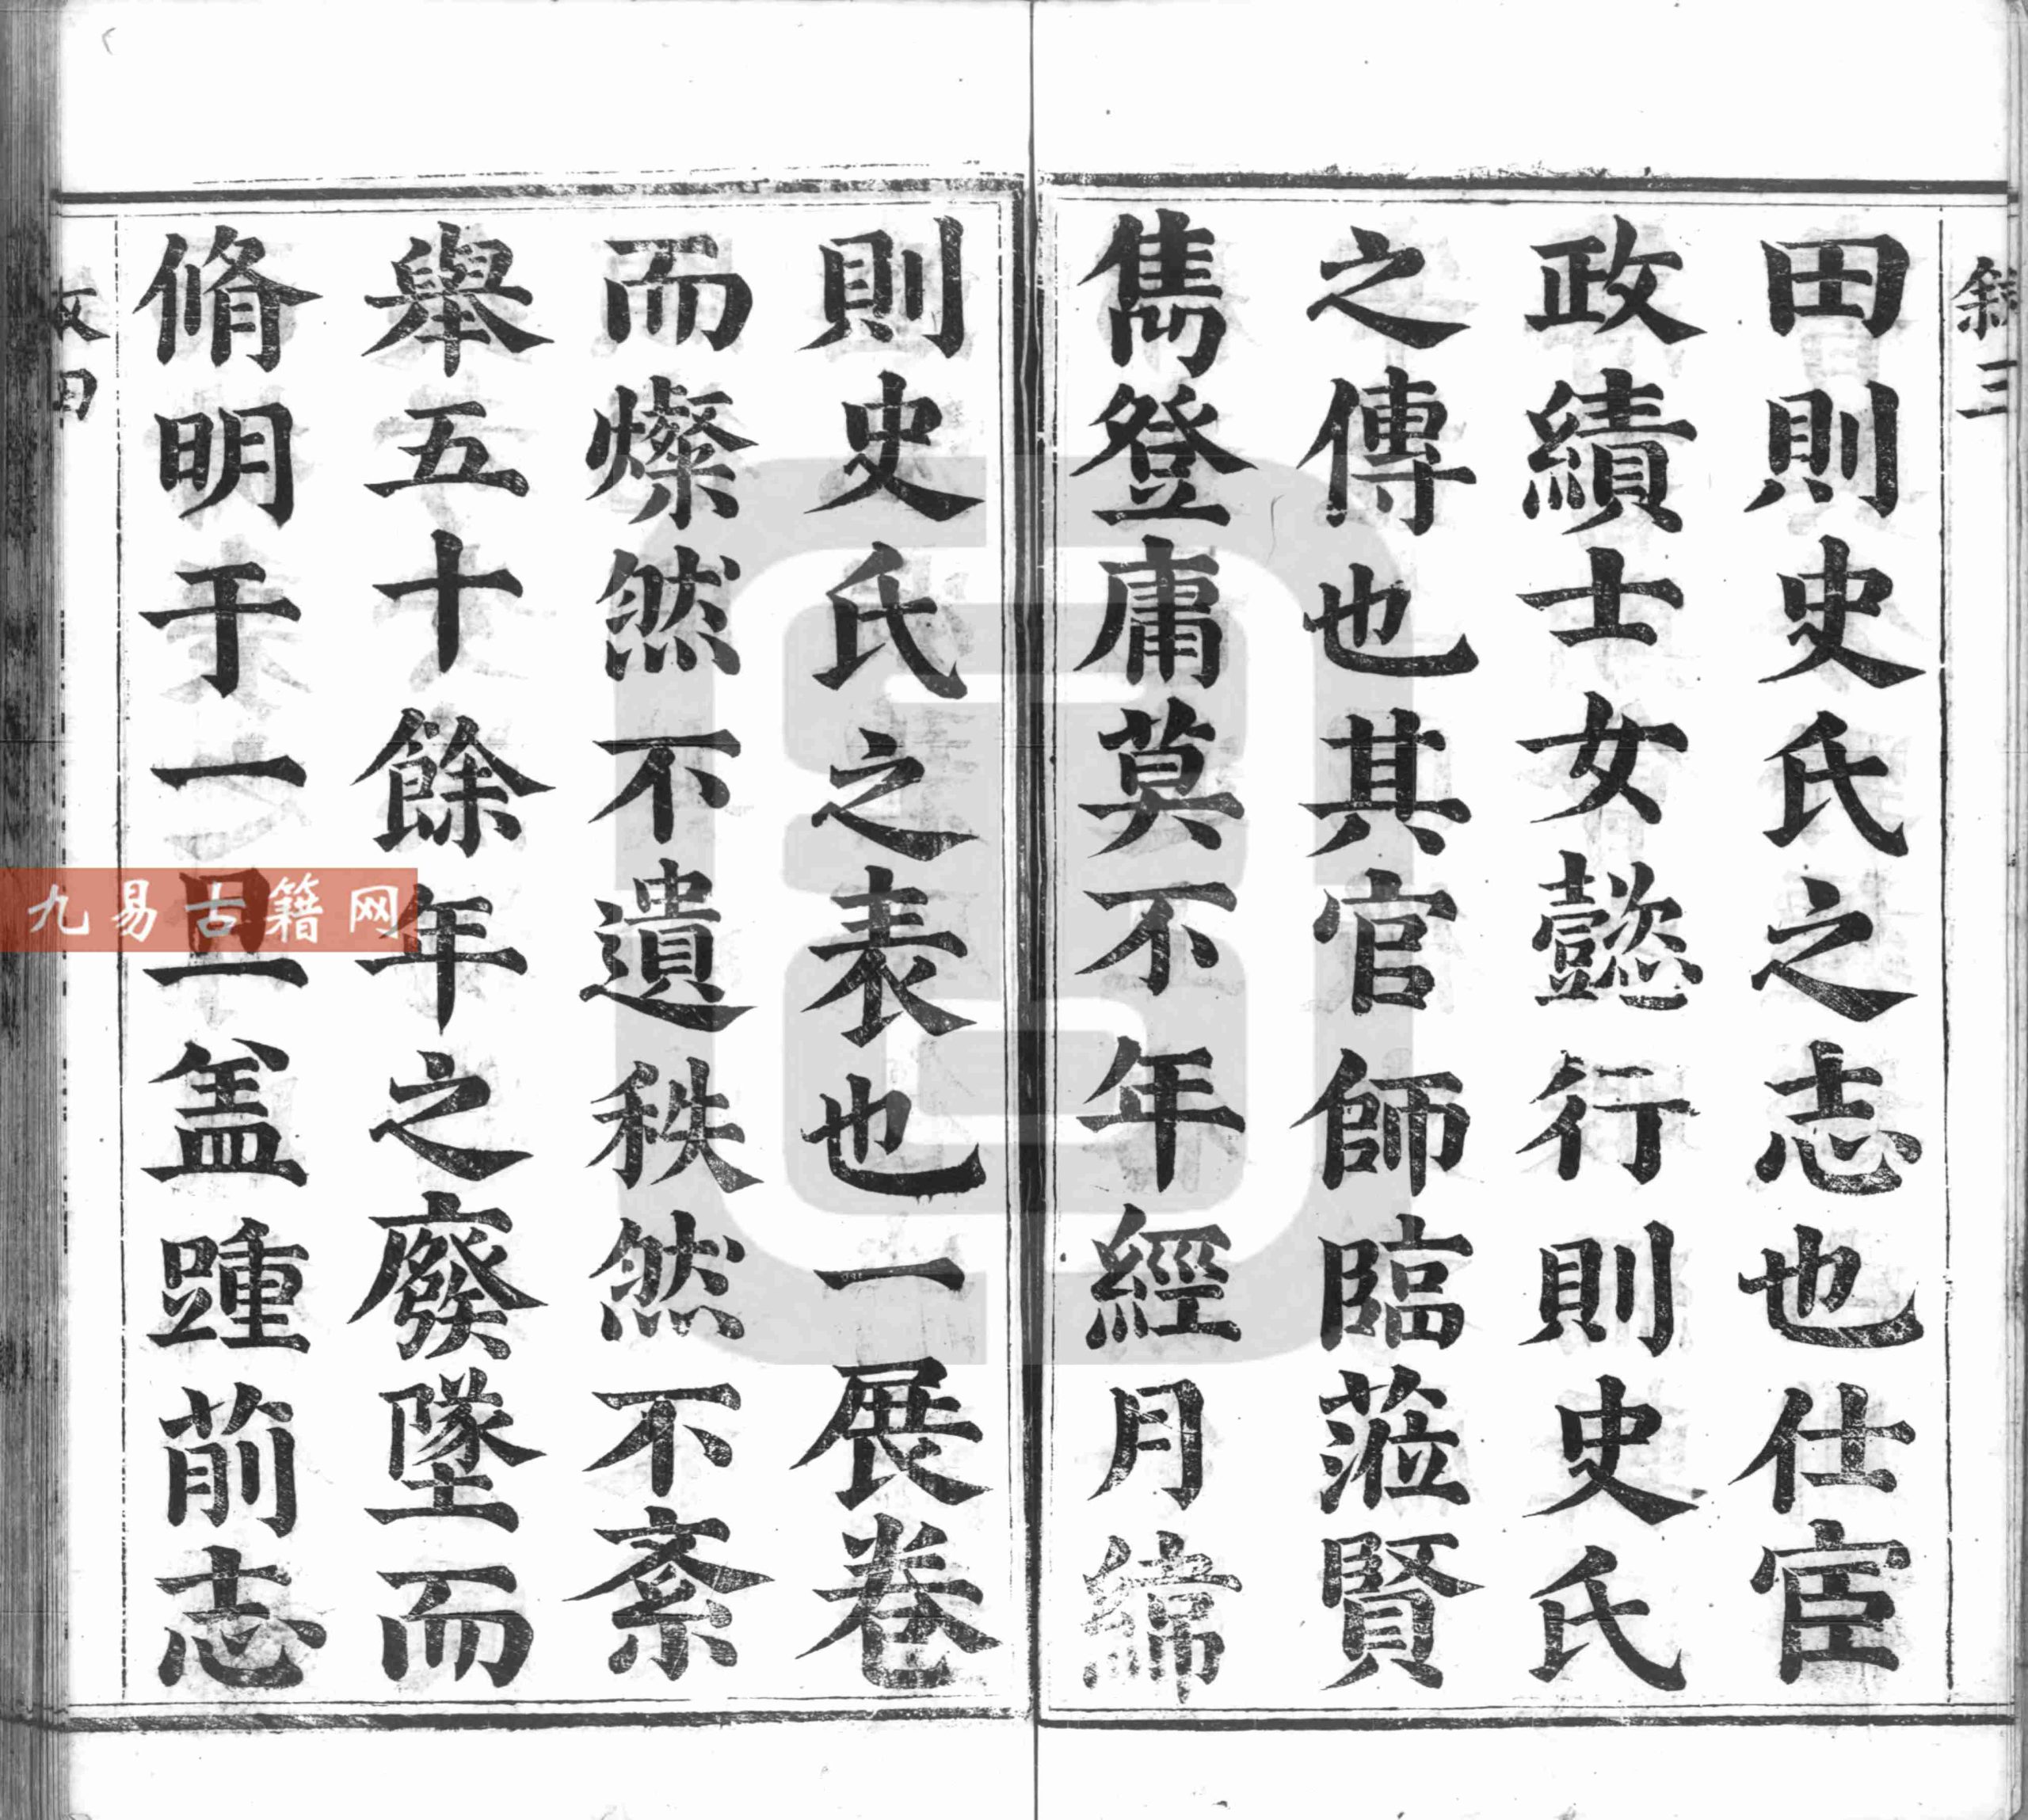 敘三
田則史氏之志也仕宦
政績士女懿行則史氏
之傳也其官師臨蒞賢
雋登庸莫不年經月緯
則史氏之表也一展卷
而燦然不遺秩然不紊
舉五十餘年之廢墜而
脩明于一旦盖踵前志
九易古籍网